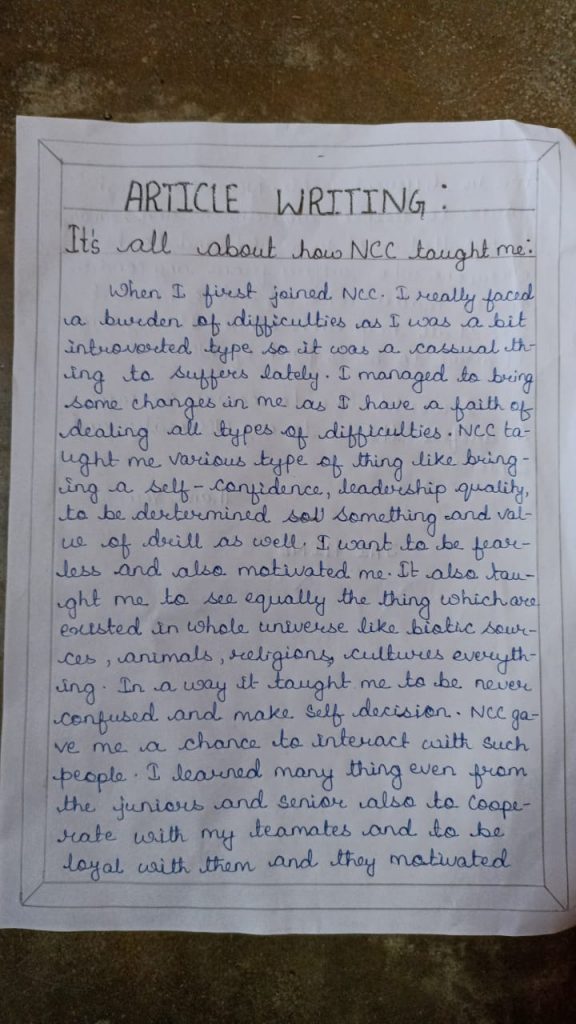 ARTICLE WRITING:
It's all about how NCC taught me:
When I first joined NCC. I really faced
a burden of difficulties as I was a bit
introvorted type so it was a cassual th-
ing to suffers lately. I managed to bring
some changes in me as I have a faith of
dealing all types of difficulties. NCC ta-
ught me various type of thing like bring-
ing a self-confidence, leadership quality,
to be dertermined something and val-
ue of drill as well. I want to be fear-
less and also motivated me. It also tau-
ght me to see equally the thing which are
existed in whole universe like biotic sour-
ces, animals, religions, cultures everyth-
ing. In a way it taught me to be never
confused and make self decision. NCC ga-
ve me a chance to interact with such
people. I learned many thing even from
the juniors and senior also to coope-
rate with my teamates and to be
loyal with them and they motivated